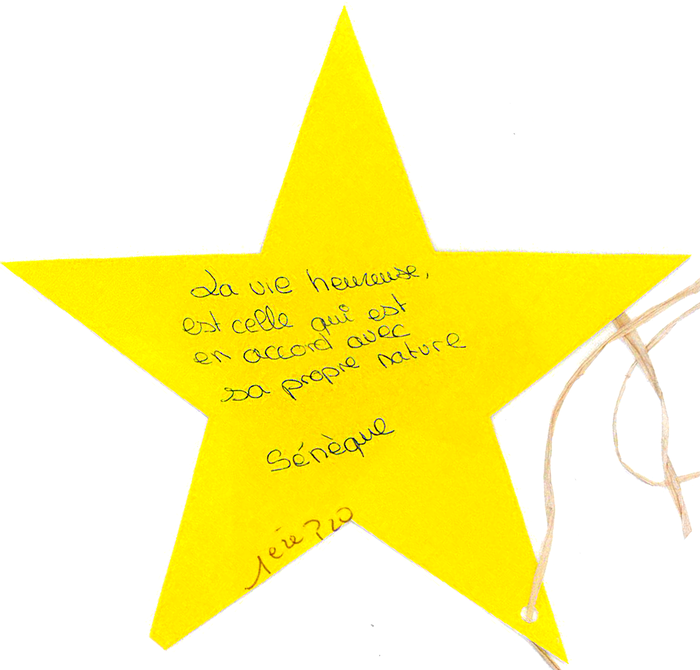 La vie heureuse,
est celle qui est
en accord avec
sa propre nature
Sénèque
1ère Pro